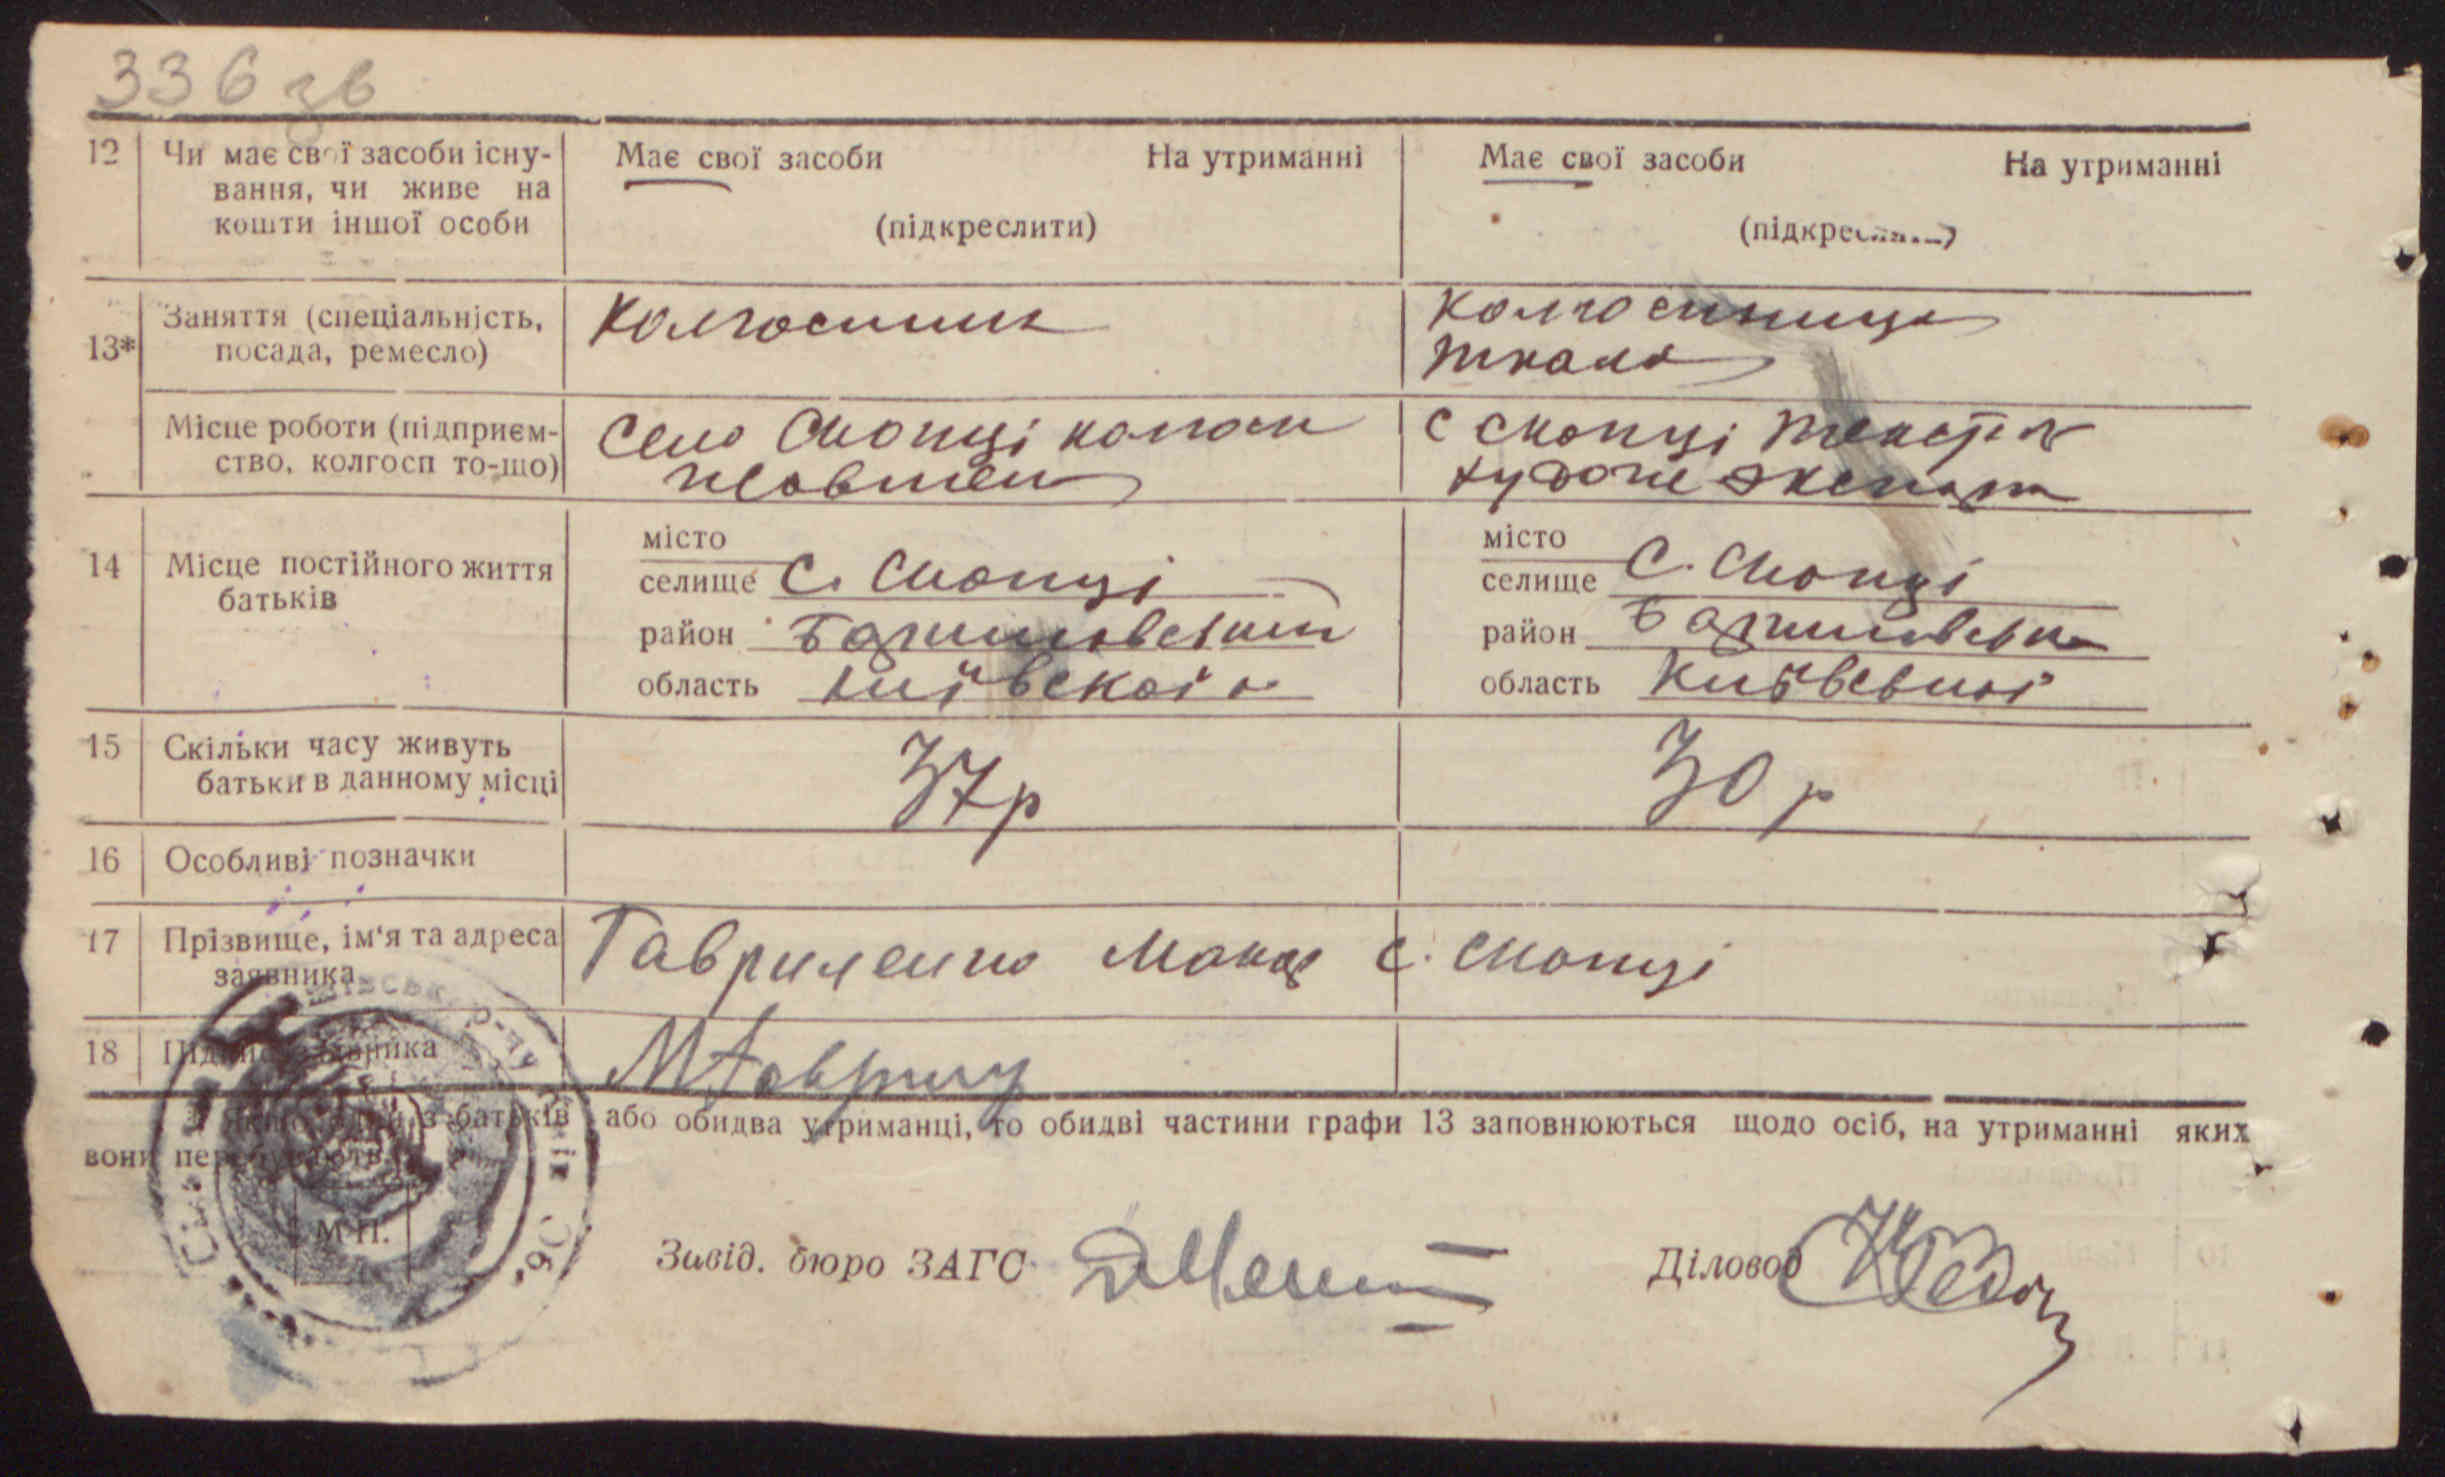 336 зв
12 Чи має свої засоби існу- Має свої засоби На утриманні Має свої засоби На утриманні
вання, чи живе на
кошти іншої особи (підкреслити) (підкреслити)
13* Заняття (спеціальність, Колгоспник Колгоспниця
посада, ремесло) ткаля
Місце роботи (підприєм- Село Скопці колгосп с Скопці
ство, колгосп то-що) Жовтень художе экспорт
14 Місце постійного життя місто місто
батьків селище с. Скопці селище с. Скопці
район район
область область
15 Скільки часу живуть 37р 30 р
батьки в данному місці
16 Особливі позначки
17 Прізвище, ім'я та адреса Гавриленко Макар с. Скопці
заявника
18 Підпис заявника МГаврил
* Якщо один з батьків або обидва утриманці, то обидві частини графи 13 заповнюються щодо осіб, на утриманні яких
вони перебувають.
М П.
Завід. бюро ЗАГС Діловод